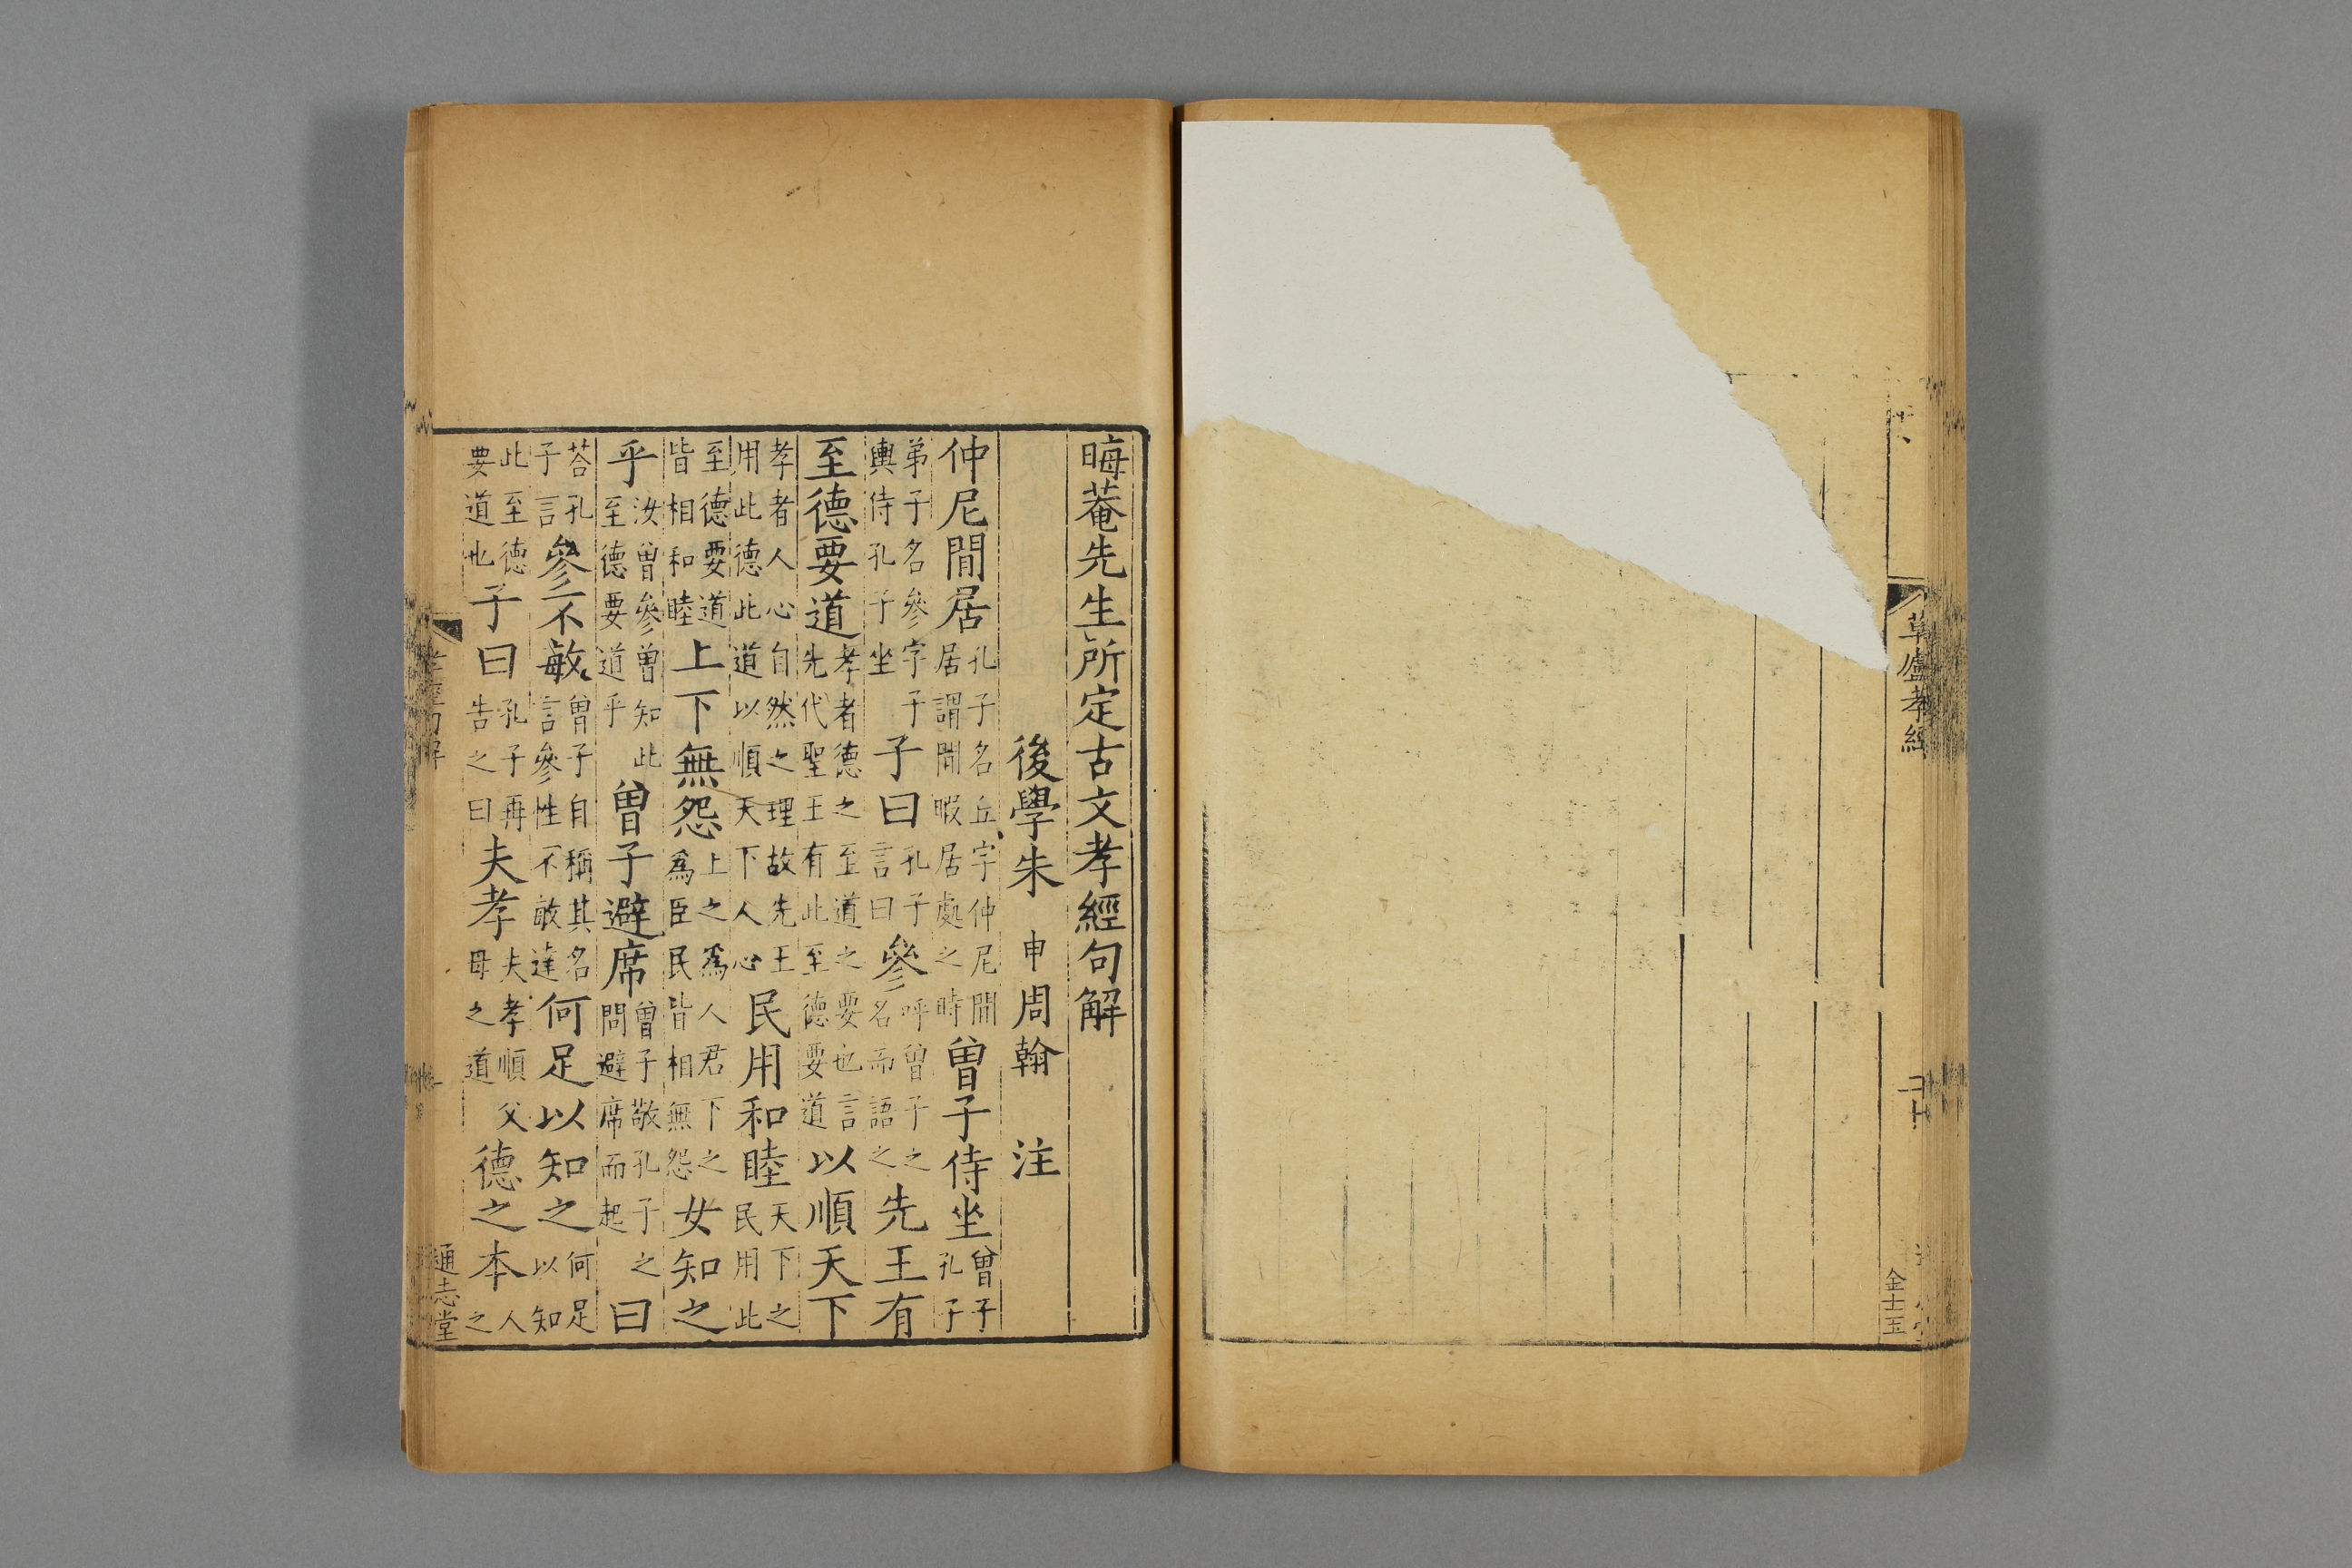 草廬孝經
金士玉
晦菴先生所定古文孝經句解
後學朱申周翰注
仲尼閒居孔子名丘字仲尼閒居謂閒暇居處之時曾子侍坐曾子孔子
弟子名參字子輿侍孔子坐子曰孔子言曰參呼曾子之名而語之先王有
至德要道孝者德之至道之要也言先代聖王有此至德要道以順天下
孝者人心自然之理故先王用此德此道以順天下人心民用和睦天下之民用此
至德要道皆相和睦上下無怨上之爲人君下之爲臣民皆相無怨女知之
乎汝曾參曾知此至德要道乎曾子避席曾子敬孔子之問避席而起曰
荅孔子言參不敏曾子自稱其名言參性不敏達何足以知之何足以知
此至德要道也子曰孔子再告之曰夫孝夫孝順父母之道德之本人之
通志堂